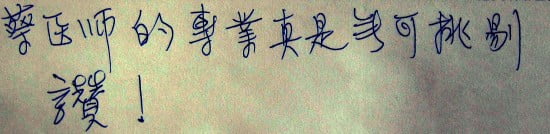 蔡医师的專業真是无可挑剔
讚！